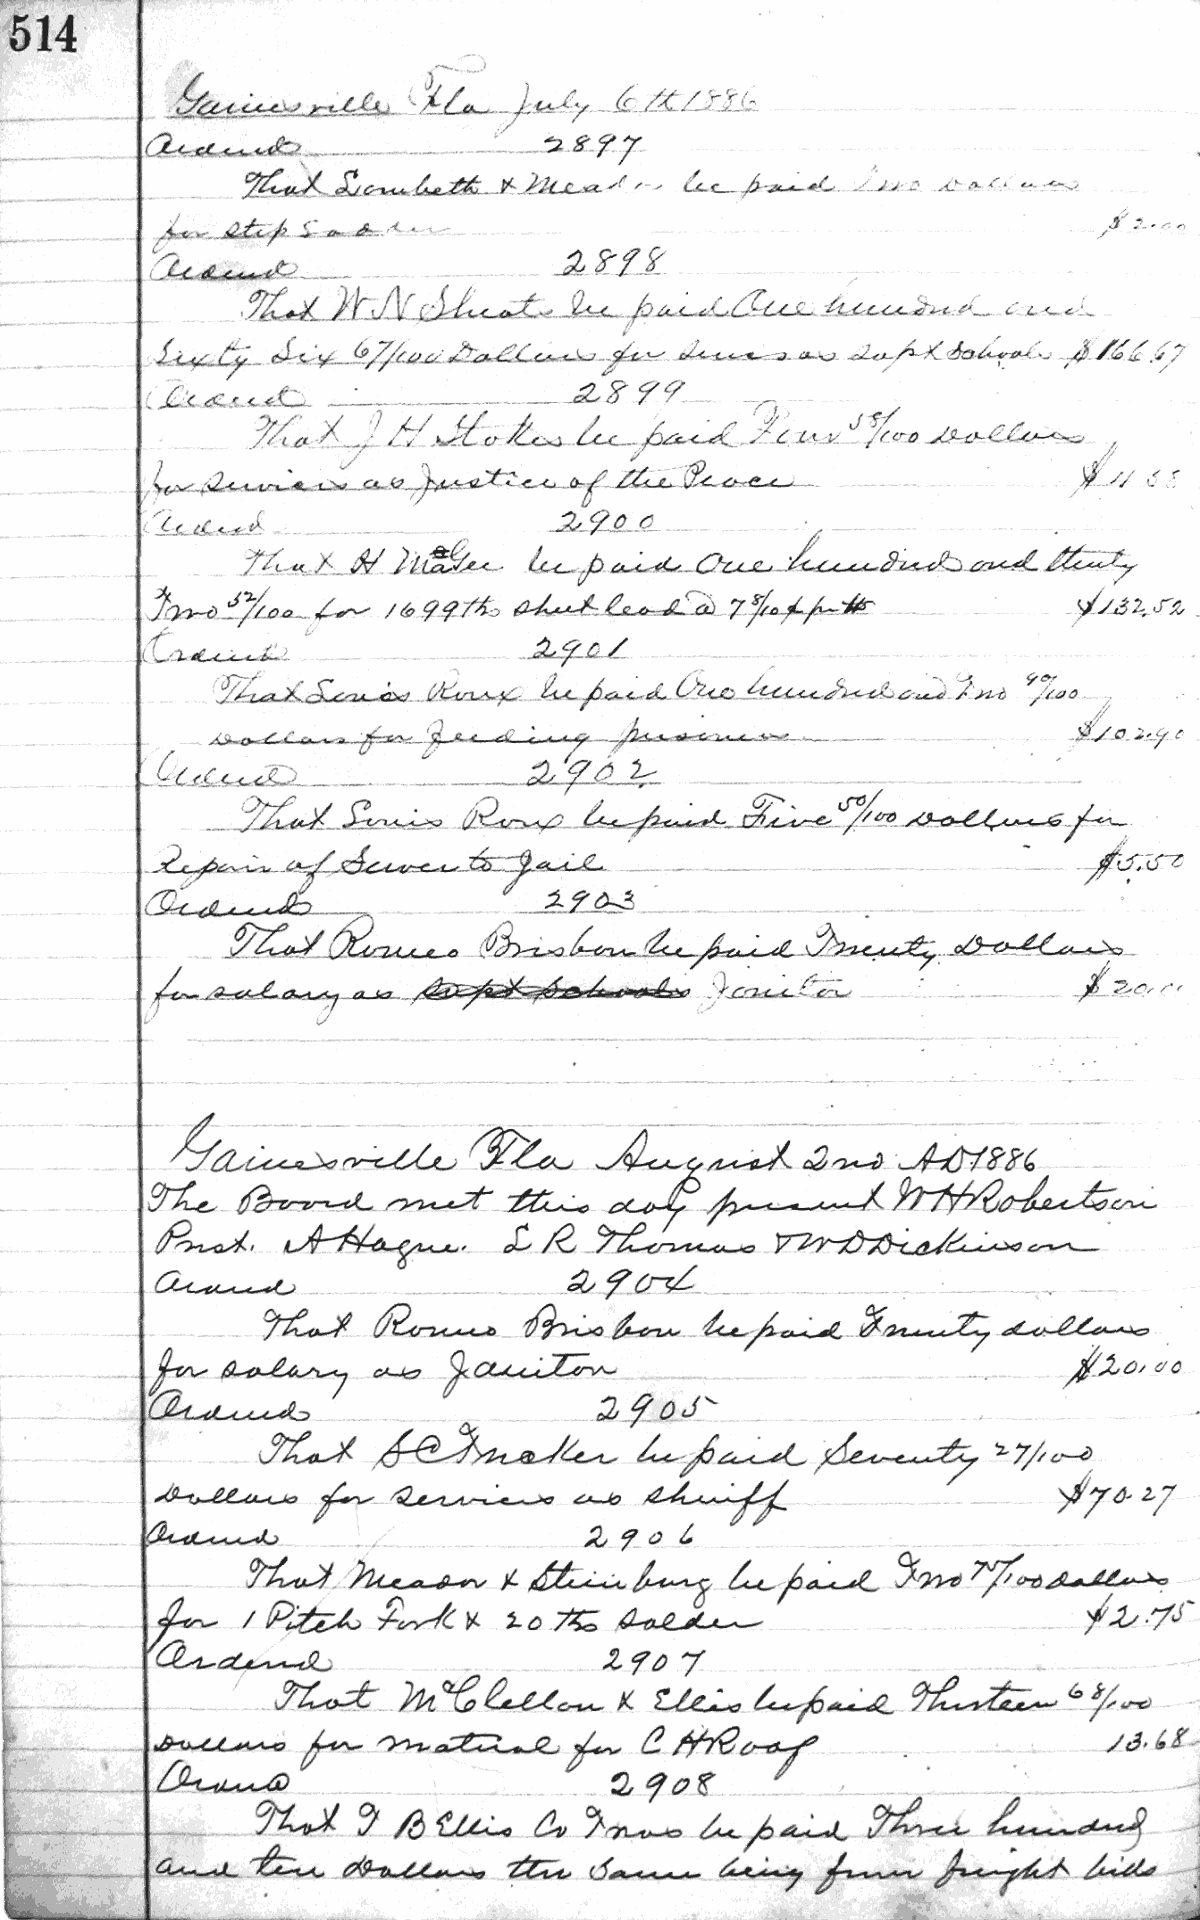 514
Gainesville Fla July 6th 1886
Ordered 2897
That Lambeth & Meador be paid Two Dollars
for step Ladder $2.00
Ordered 2898
That W N Sheats be paid One hundred and
Sixty Six 67/100 Dollars for services as Supt Schools $166.67
Ordered 2899
That J H Stokes be paid Four 58/100 Dollars
for services as Justice of the Peace $4.58
Ordered 2900
That H McGee be paid One hundred and thirty
Two 52/100 for 1699 lbs sheet lead @ 7 8/10¢ per lb $132.52
Ordered 2901
That Louis Roux be paid One hundred and Two 90/100
Dollars for feeding prisoners $102.90
Ordered 2902
That Louis Roux be paid Five 50/100 Dollars for
Repair of Sewer to Jail $5.50
Ordered 2903
That Romeo Brisbon be paid Twenty Dollars
for salary as Supt Schools Janitor $20.00
Gainesville Fla August 2nd AD 1886
The Board met this day present W H Robertson
Prest. A Hague. L R Thomas & W D Dickinson
Ordered 2904
That Romeo Brisbon be paid Twenty dollars
for salary as Janitor $20.00
Ordered 2905
That S C Tucker be paid Seventy 27/100
Dollars for services as sheriff $70.27
Ordered 2906
That Meador & Steinburg be paid Two 75/100 dollars
for 1 Pitch Fork & 20 lbs solder $2.75
Ordered 2907
That McClellan & Ellis be paid Thirteen 68/100
Dollars for material for C H Roof 13.68
Ordered 2908
That T B Ellis Co Treas be paid Three hundred
and ten Dollars the same being from freight bids